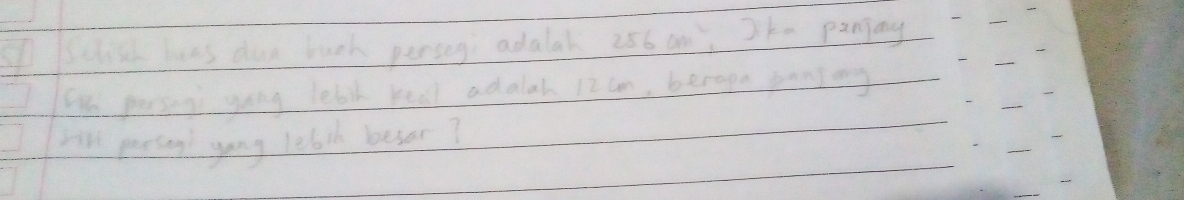 Selisih luas dua buah persegi adalah 256 cm². Jika panjang
sisi persegi yang lebih kecil adalah 12 cm, berapa panjang
sisi persegi yang lebih besar?